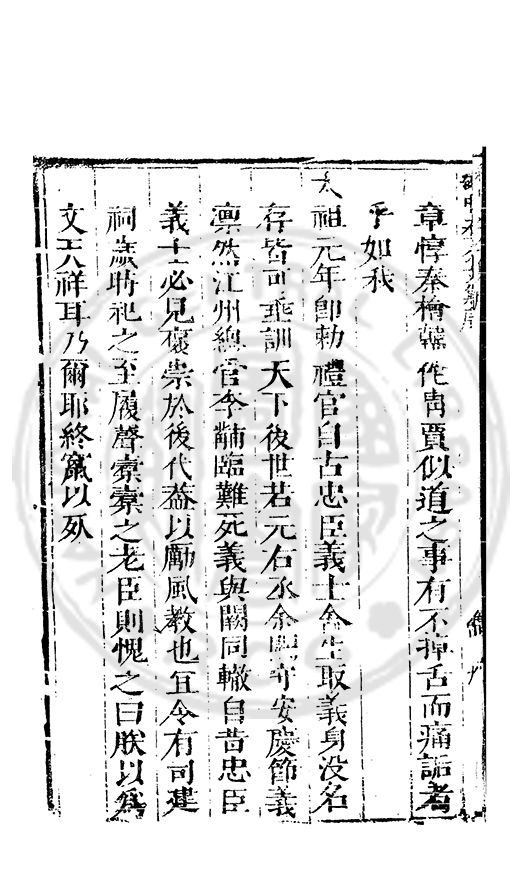 章惇秦檜韓侂冑賈似道之事有不掉舌而痛詬者
乎如我
太祖元年卽勅禮官自古忠臣義士舍生取義身沒名
存皆可垂訓天下後世若元右丞余闕守安慶節義
凛然江州總官李黼臨難死義與闕同轍自昔忠臣
義士必見褒崇於後代葢以勵風教也宜令有司建
祠歲時祀之至履聲橐橐之老臣則愧之曰朕以爲
文天祥耳乃爾耶終竄以死